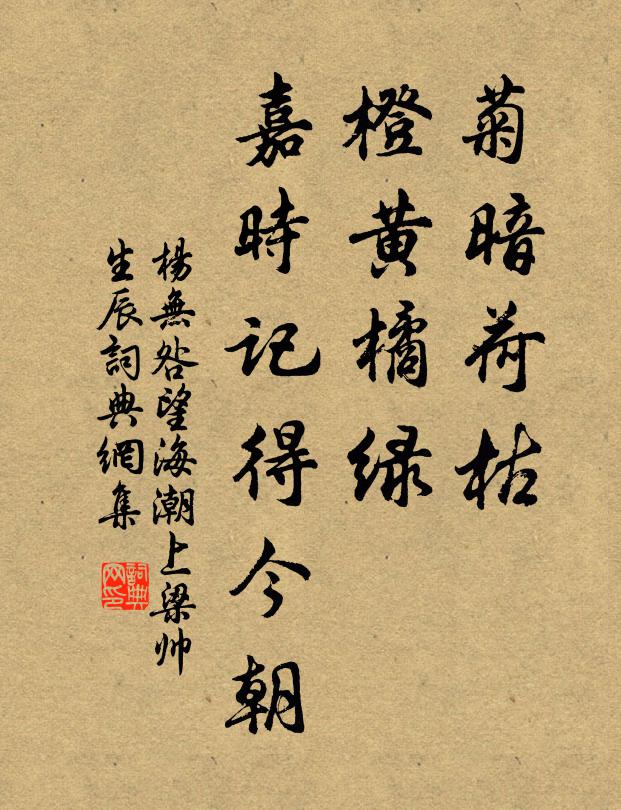 菊暗荷枯
橙黄橘緑
嘉時記得今朝
楊無咎望海潮上梁帅
生辰詞典網集
詞典
网印